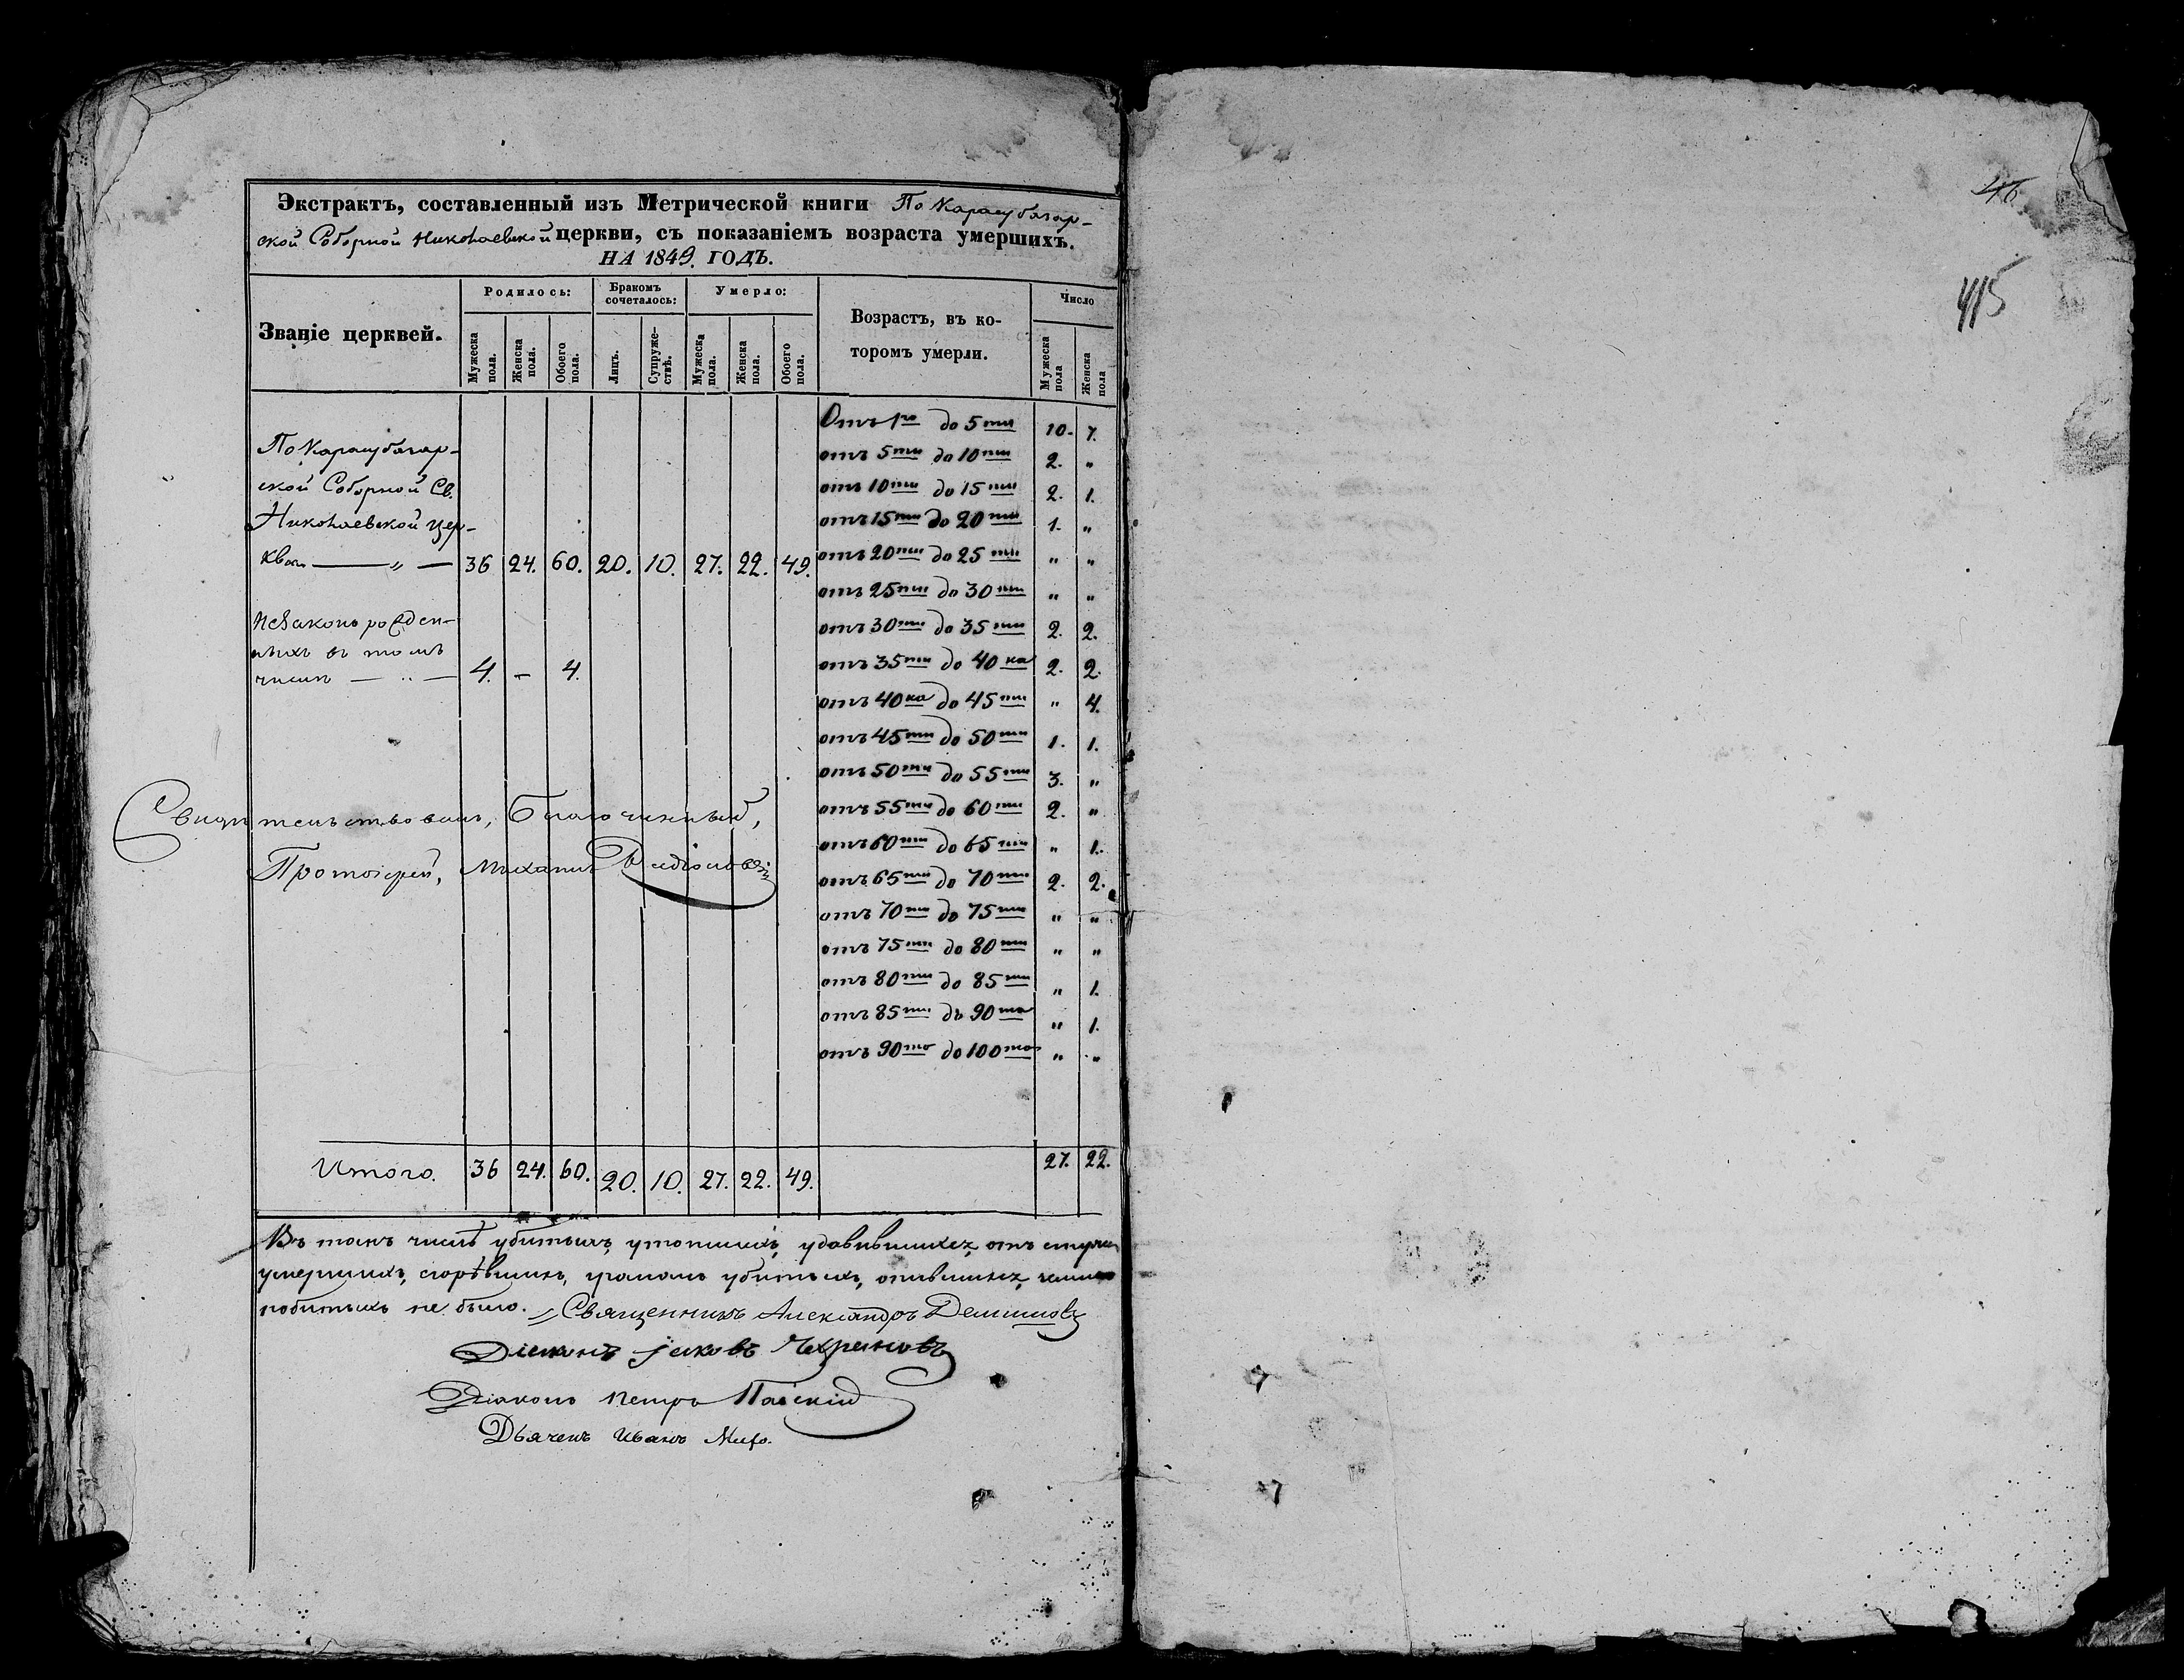 Экстрактъ, составленный изъ Метрической книги По Карасубазар-
ской Соборной Николаевской церкви, съ показаніемъ возраста умершихъ.
НА 1849. ГОДЪ.
Званіе церквей.
Родилось:
Бракомъ сочеталось:
Умерло:
Возрастъ, въ ко-
торомъ умерли.
Число
Мужеска пола.
Женска пола.
Обоего пола.
Лицъ.
Супруже-
ствъ.
Мужеска пола.
Женска пола.
Обоего пола.
Мужеска пола
Женска пола
По Карасубазар-
ской Соборной Св.
Николаевской цер-
кви — „ — 36 24. 60. 20. 10. 27. 22. 49.
Незаконорожден-
ныхъ въ томъ
числѣ — „ — 4. - 4.
Отъ 1го до 5ти 10. 7.
отъ 5ти до 10ти 2. „
отъ 10ти до 15ти 2. 1.
отъ 15ти до 20ти 1. „
отъ 20ти до 25ти „ „
отъ 25ти до 30ти „ „
отъ 30ти до 35ти 2. 2.
отъ 35ти до 40ка 2. 2.
отъ 40ка до 45ти „ 4.
отъ 45ти до 50ти 1. 1.
отъ 50ти до 55ти 3. „
отъ 55ти до 60ти 2. „
отъ 60ти до 65ти „ 1.
отъ 65ти до 70ти 2. 2.
отъ 70ти до 75ти „ „
отъ 75ти до 80ти „ „
отъ 80ти до 85ти „ 1.
отъ 85ти до 90то „ 1.
отъ 90то до 100та „ „
Свидѣтельствовалъ, Благочинный,
Протоіерей, Михаилъ
Итого. 36 24. 60. 20. 10. 27. 22. 49. 27. 22.
Въ томъ числѣ убитыхъ, утопшихъ, удавившихся, отъ стужи
умершихъ, сгорѣвшихъ, громомъ убитыхъ, опившихся,
побитыхъ не было. Священникъ Александръ Демяновъ
Діаконъ Іаковъ
Діаконъ Петръ
Дьячекъ Иванъ
46
415